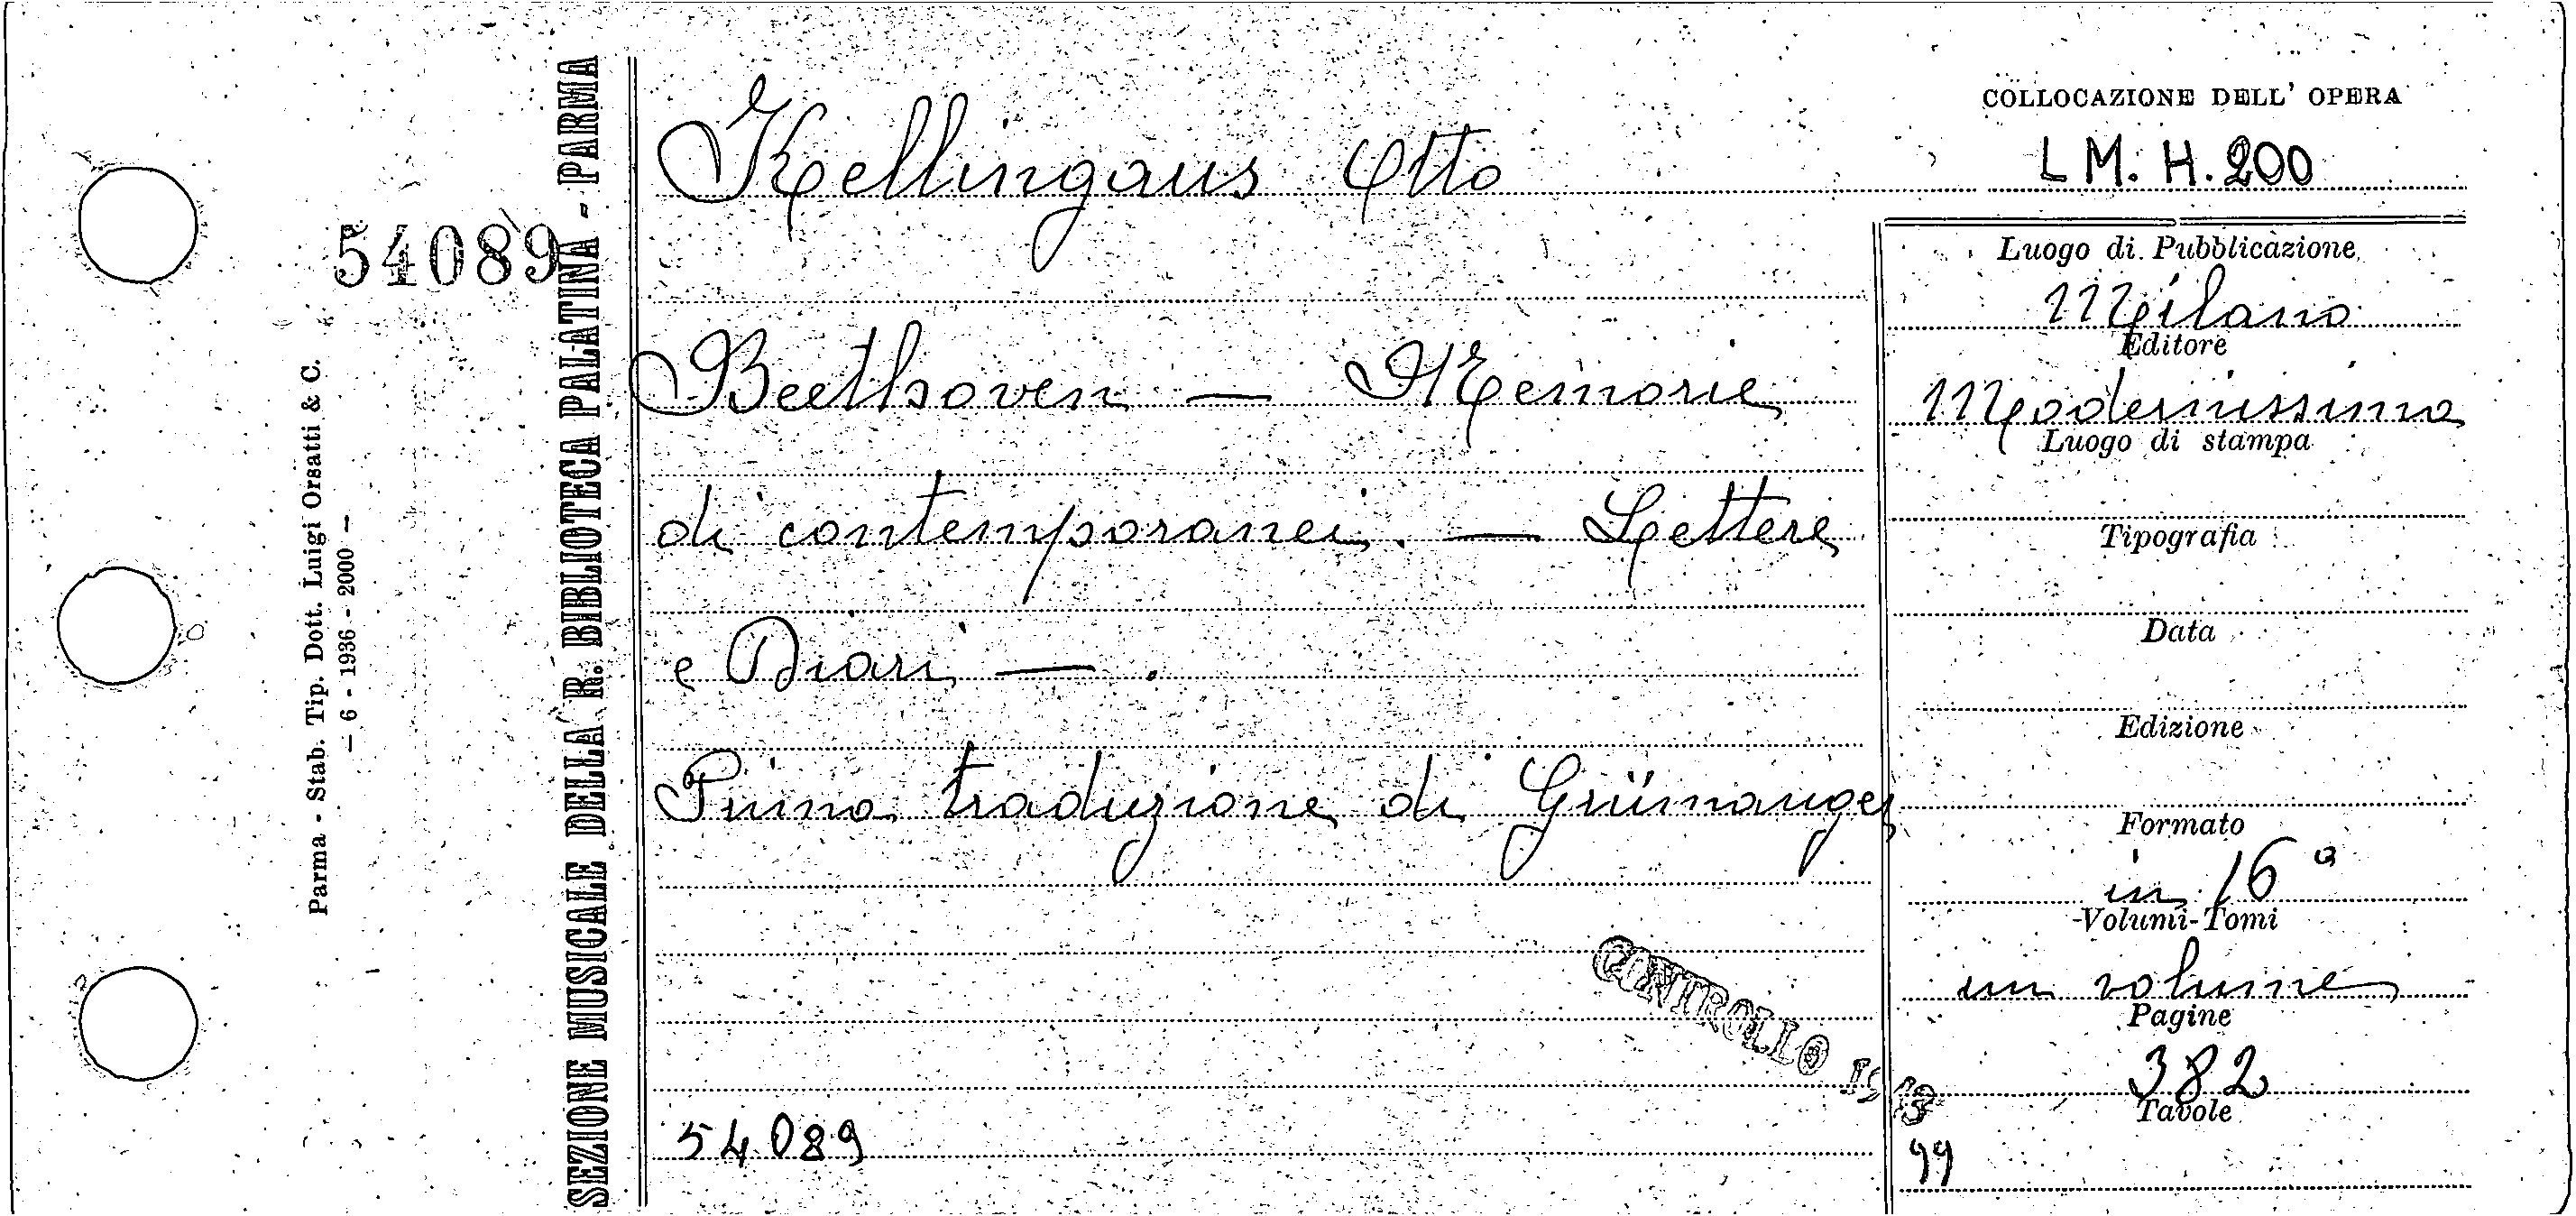 54089
Parma - Stab. Tip. Dott. Luigi Orsatti & C.
– 6 - 1936 - 2000 –
SEZIONE MUSICALE DELLA R. BIBLIOTECA PALATINA - PARMA
Kellingaus Otto
Beethoven — Memorie
di contemporanei. — Lettere
e Diari — .
Prima traduzione di Grümanger
CONTROLLO
54089
COLLOCAZIONE DELL' OPERA
L M. H. 200
Luogo di Pubblicazione
Milano
Editore
Modernissima
Luogo di stampa
Tipografia
Data
Edizione
Formato
in 16°
Volumi-Tomi
un volume
Pagine
382
Tavole
99